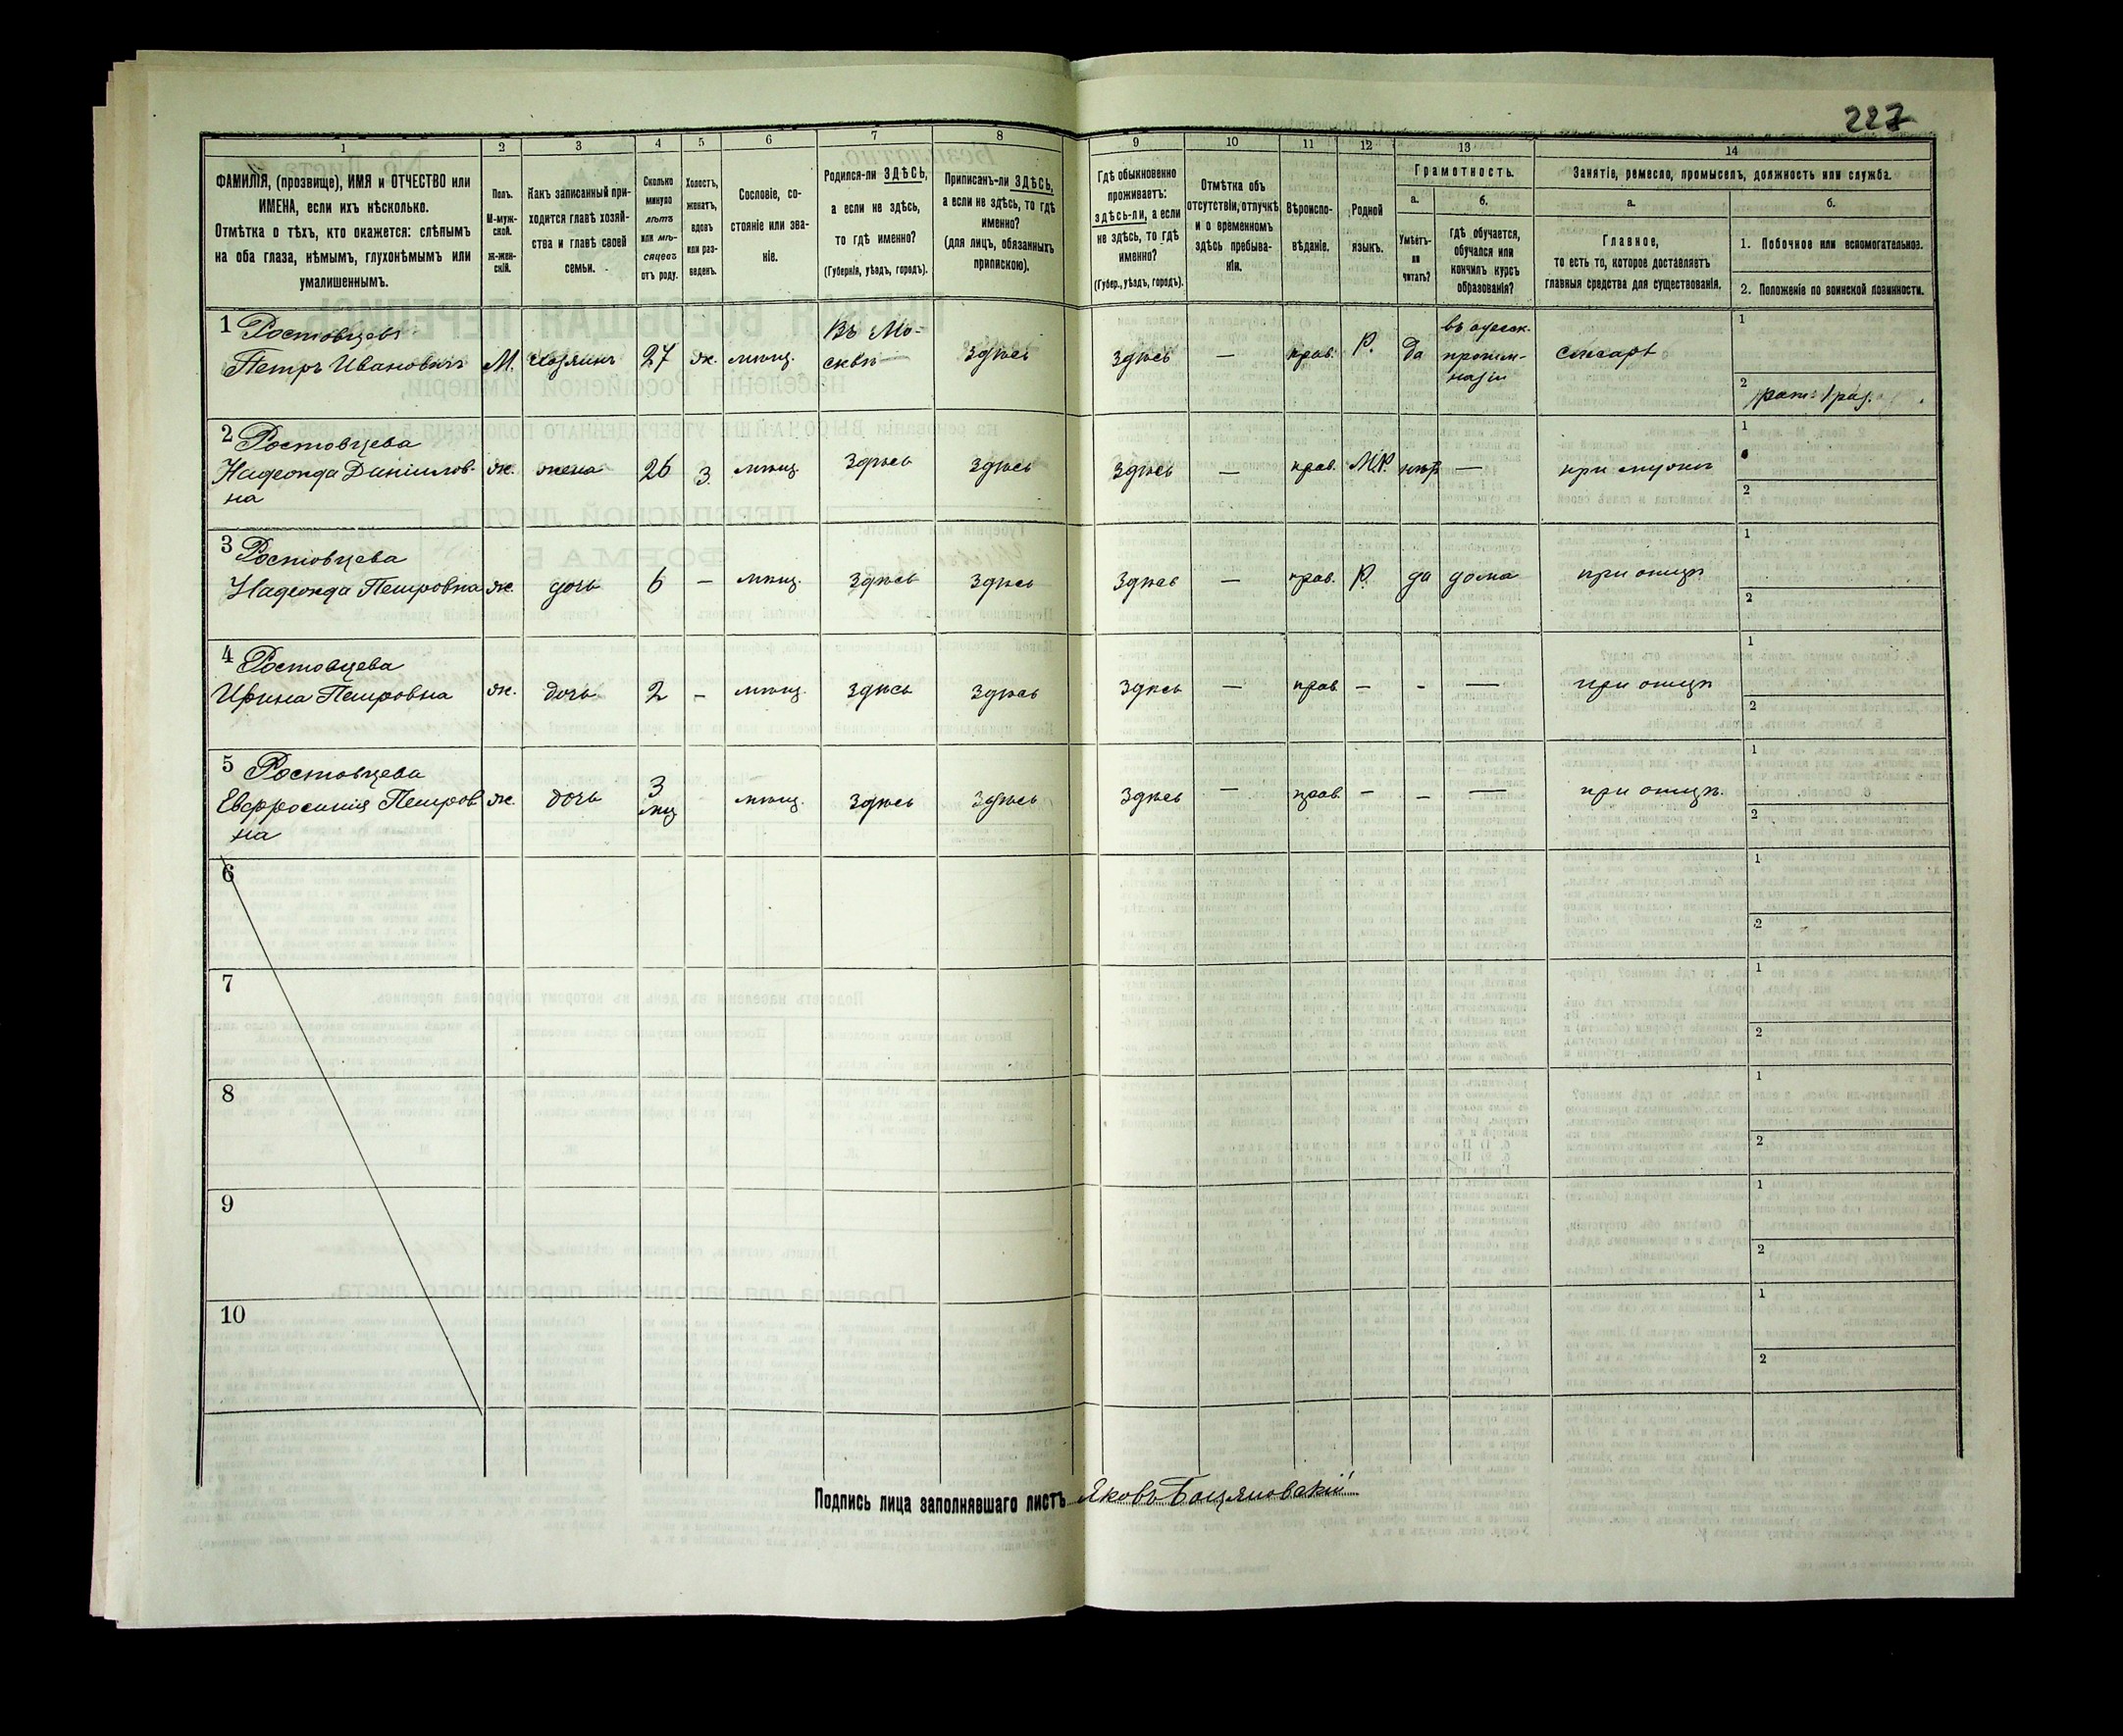 227
1
2
3
4
5
6
7
8
9
10
11
12
13
14
ФАМИЛІЯ, (прозвище), ИМЯ и ОТЧЕСТВО или
ИМЕНА, если ихъ нѣсколько.
Отмѣтка о тѣхъ, кто окажется: слѣпымъ
на оба глаза, нѣмымъ, глухонѣмымъ или
умалишеннымъ.
Полъ.
М-муж-
ской.
Ж-жен-
скій.
Какъ записанный при-
ходится главѣ хозяй-
ства и главѣ своей
семьи.
Сколько
минуло
лѣтъ
или мѣ-
сяцевъ
отъ роду.
Холостъ,
женатъ,
вдовъ
или раз-
веденъ.
Сословіе, со-
стояніе или зва-
ніе.
Родился-ли ЗДѢСЬ,
а если не здѣсь,
то гдѣ именно?
(Губернія, уѣздъ, городъ).
Приписанъ-ли ЗДѢСЬ,
а если не здѣсь, то гдѣ
именно?
(для лицъ, обязанныхъ
припискою).
Гдѣ обыкновенно
проживаетъ:
здѣсь-ли, а если
не здѣсь, то гдѣ
именно?
(Губер., уѣздъ, городъ).
Отмѣтка объ
отсутствіи, отлучкѣ
и о временномъ
здѣсь пребыва-
ніи.
Вѣроиспо-
вѣданіе.
Родной
языкъ.
Грамотность.
а.
Умѣетъ-
ли
читать?
б.
гдѣ обучается,
обучался или
кончилъ курсъ
образованія?
Занятіе, ремесло, промыселъ, должность или служба.
а.
Главное,
то есть то, которое доставляетъ
главныя средства для существованія.
б.
1. Побочное или вспомогательное.
2. Положеніе по воинской повинности.
1 Ростовцевъ
Петръ Ивановичъ М. хозяинъ 27 ж. мѣщ. Въ Мо-
сквѣ здѣсь здѣсь — прав. Р. да
прогим-
назіи
слесарь
1
2
2 Ростовцева
Надежда Даніилов-
на
ж. жена 26 з. мѣщ. здѣсь здѣсь здѣсь — прав. М.Р. нѣтъ — при мужѣ
1
2
3 Ростовцева
Надежда Петровна ж. дочь 6 — мѣщ. здѣсь здѣсь здѣсь — прав. Р. да дома при отцѣ
1
2
4 Ростовцева
Ирина Петровна ж. дочь 2 — мѣщ. здѣсь здѣсь здѣсь — прав. — - — при отцѣ
1
2
5 Ростовцева
Евфросинія Петров-
на
ж. дочь 3
мц. - мѣщ. здѣсь здѣсь здѣсь — прав. — - — при отцѣ.
1
2
6
1
2
7
1
2
8
1
2
9
1
2
10
1
2
Подпись лица заполнявшаго листъ Яковъ Боцяновскій